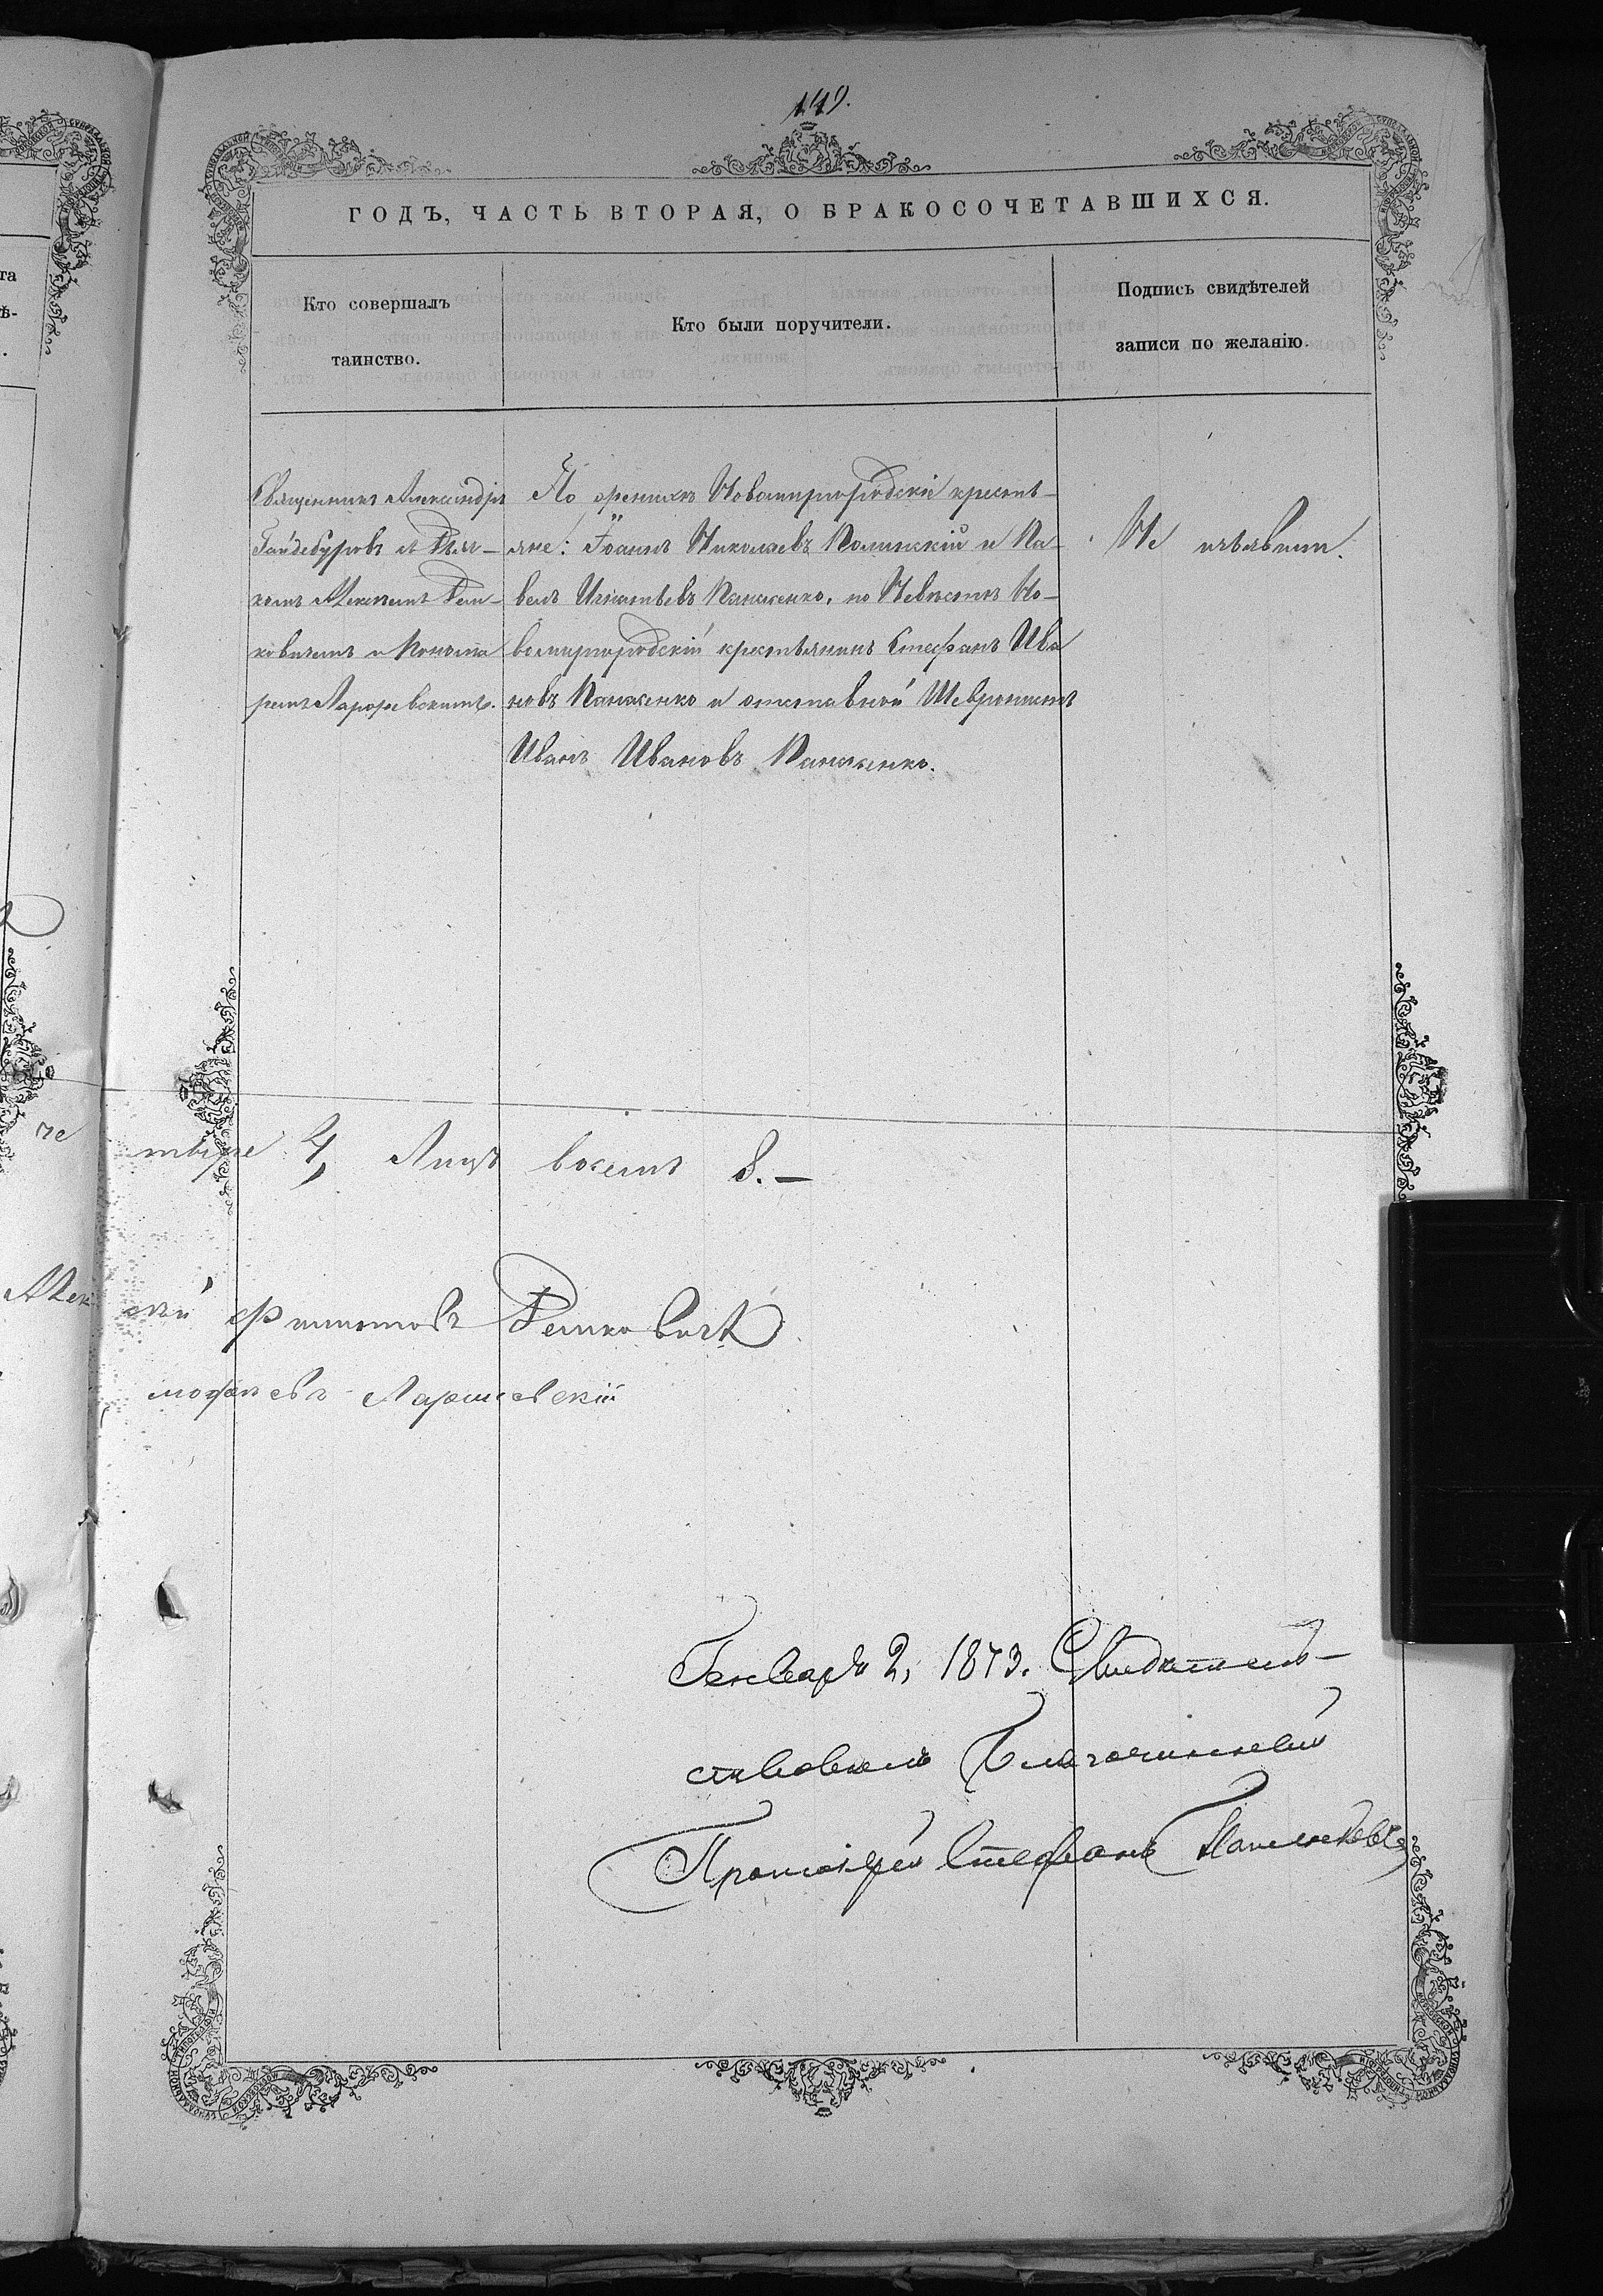 149.
ГОДЪ, ЧАСТЬ ВТОРАЯ, О БРАКОСОЧЕТАВШИХСЯ.
Кто совершалъ
таинство.
Кто были поручители.
Подпись свидѣтелей
записи по желанію.
Священникъ Александръ
Гайдебуровъ съ
комъ Алексѣемъ Вен-
ковичемъ и Понама
ремъ
По женихѣ Новомиргородскіе кресть-
яне: Іоаннъ Николаевъ Полинскій и Па-
велъ Игнатьевъ Панженко, по Невѣстѣ Но-
вомиргородскій крестьянинъ Стефанъ Ива
новъ Панженко и отставной
Иванъ Ивановъ Панженко.
Не изъявили.
че тыре 4, Лицъ восемь 8.—
Алек сѣй Филиповъ
Генваря 2, 1873. Свидѣтель-
ствовалъ Благочинный
Протоіерей Стефанъ